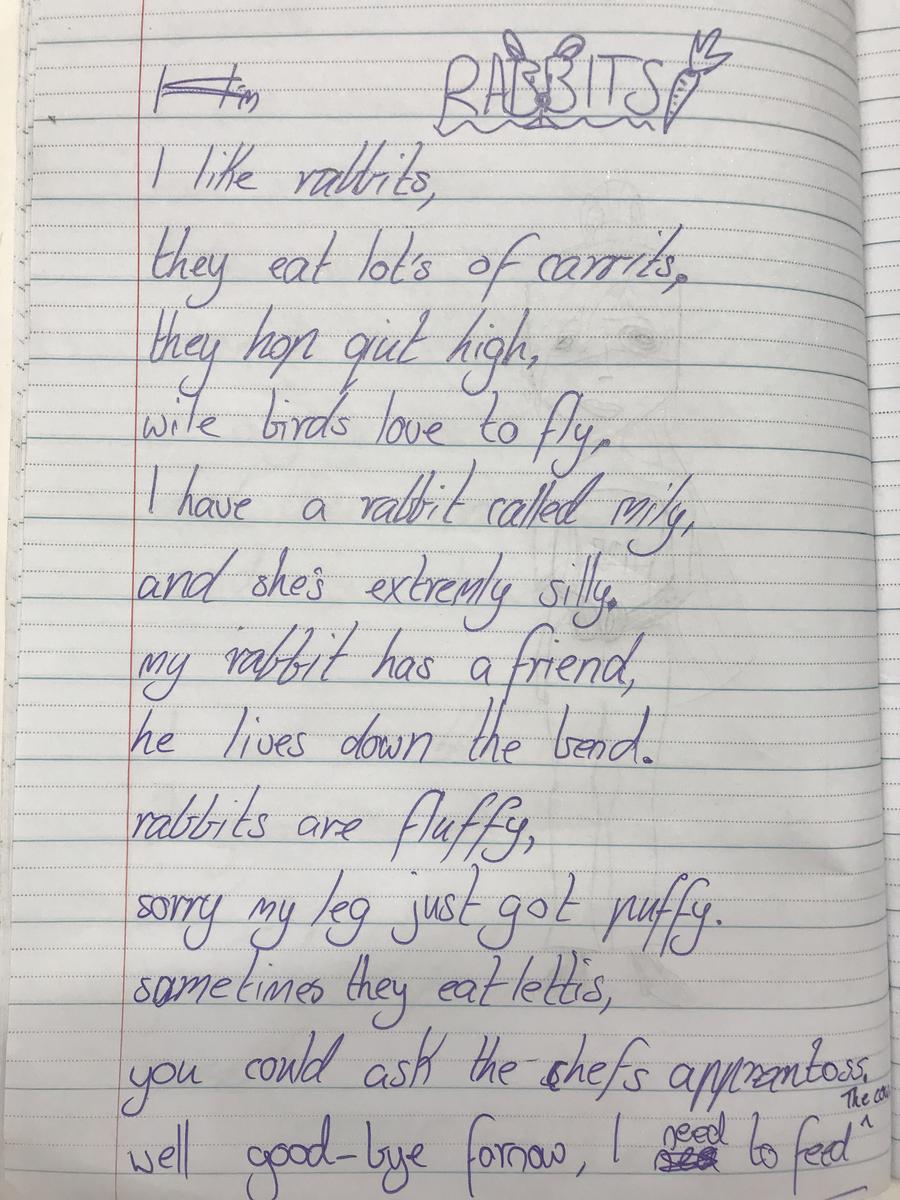 RABBITS
I like rabbits,
they eat lot's of carrits,
they hop qiut high,
wile birds love to fly,
I have a rabbit called mily,
and she's extremly silly.
my rabbit has a friend,
he lives down the bend.
rabbits are fluffy,
sorry my leg just got puffy.
sometimes they eat lettis,
you could ask the shefs apprantoss.
well good-bye fornow, I need to feed ^ The cow